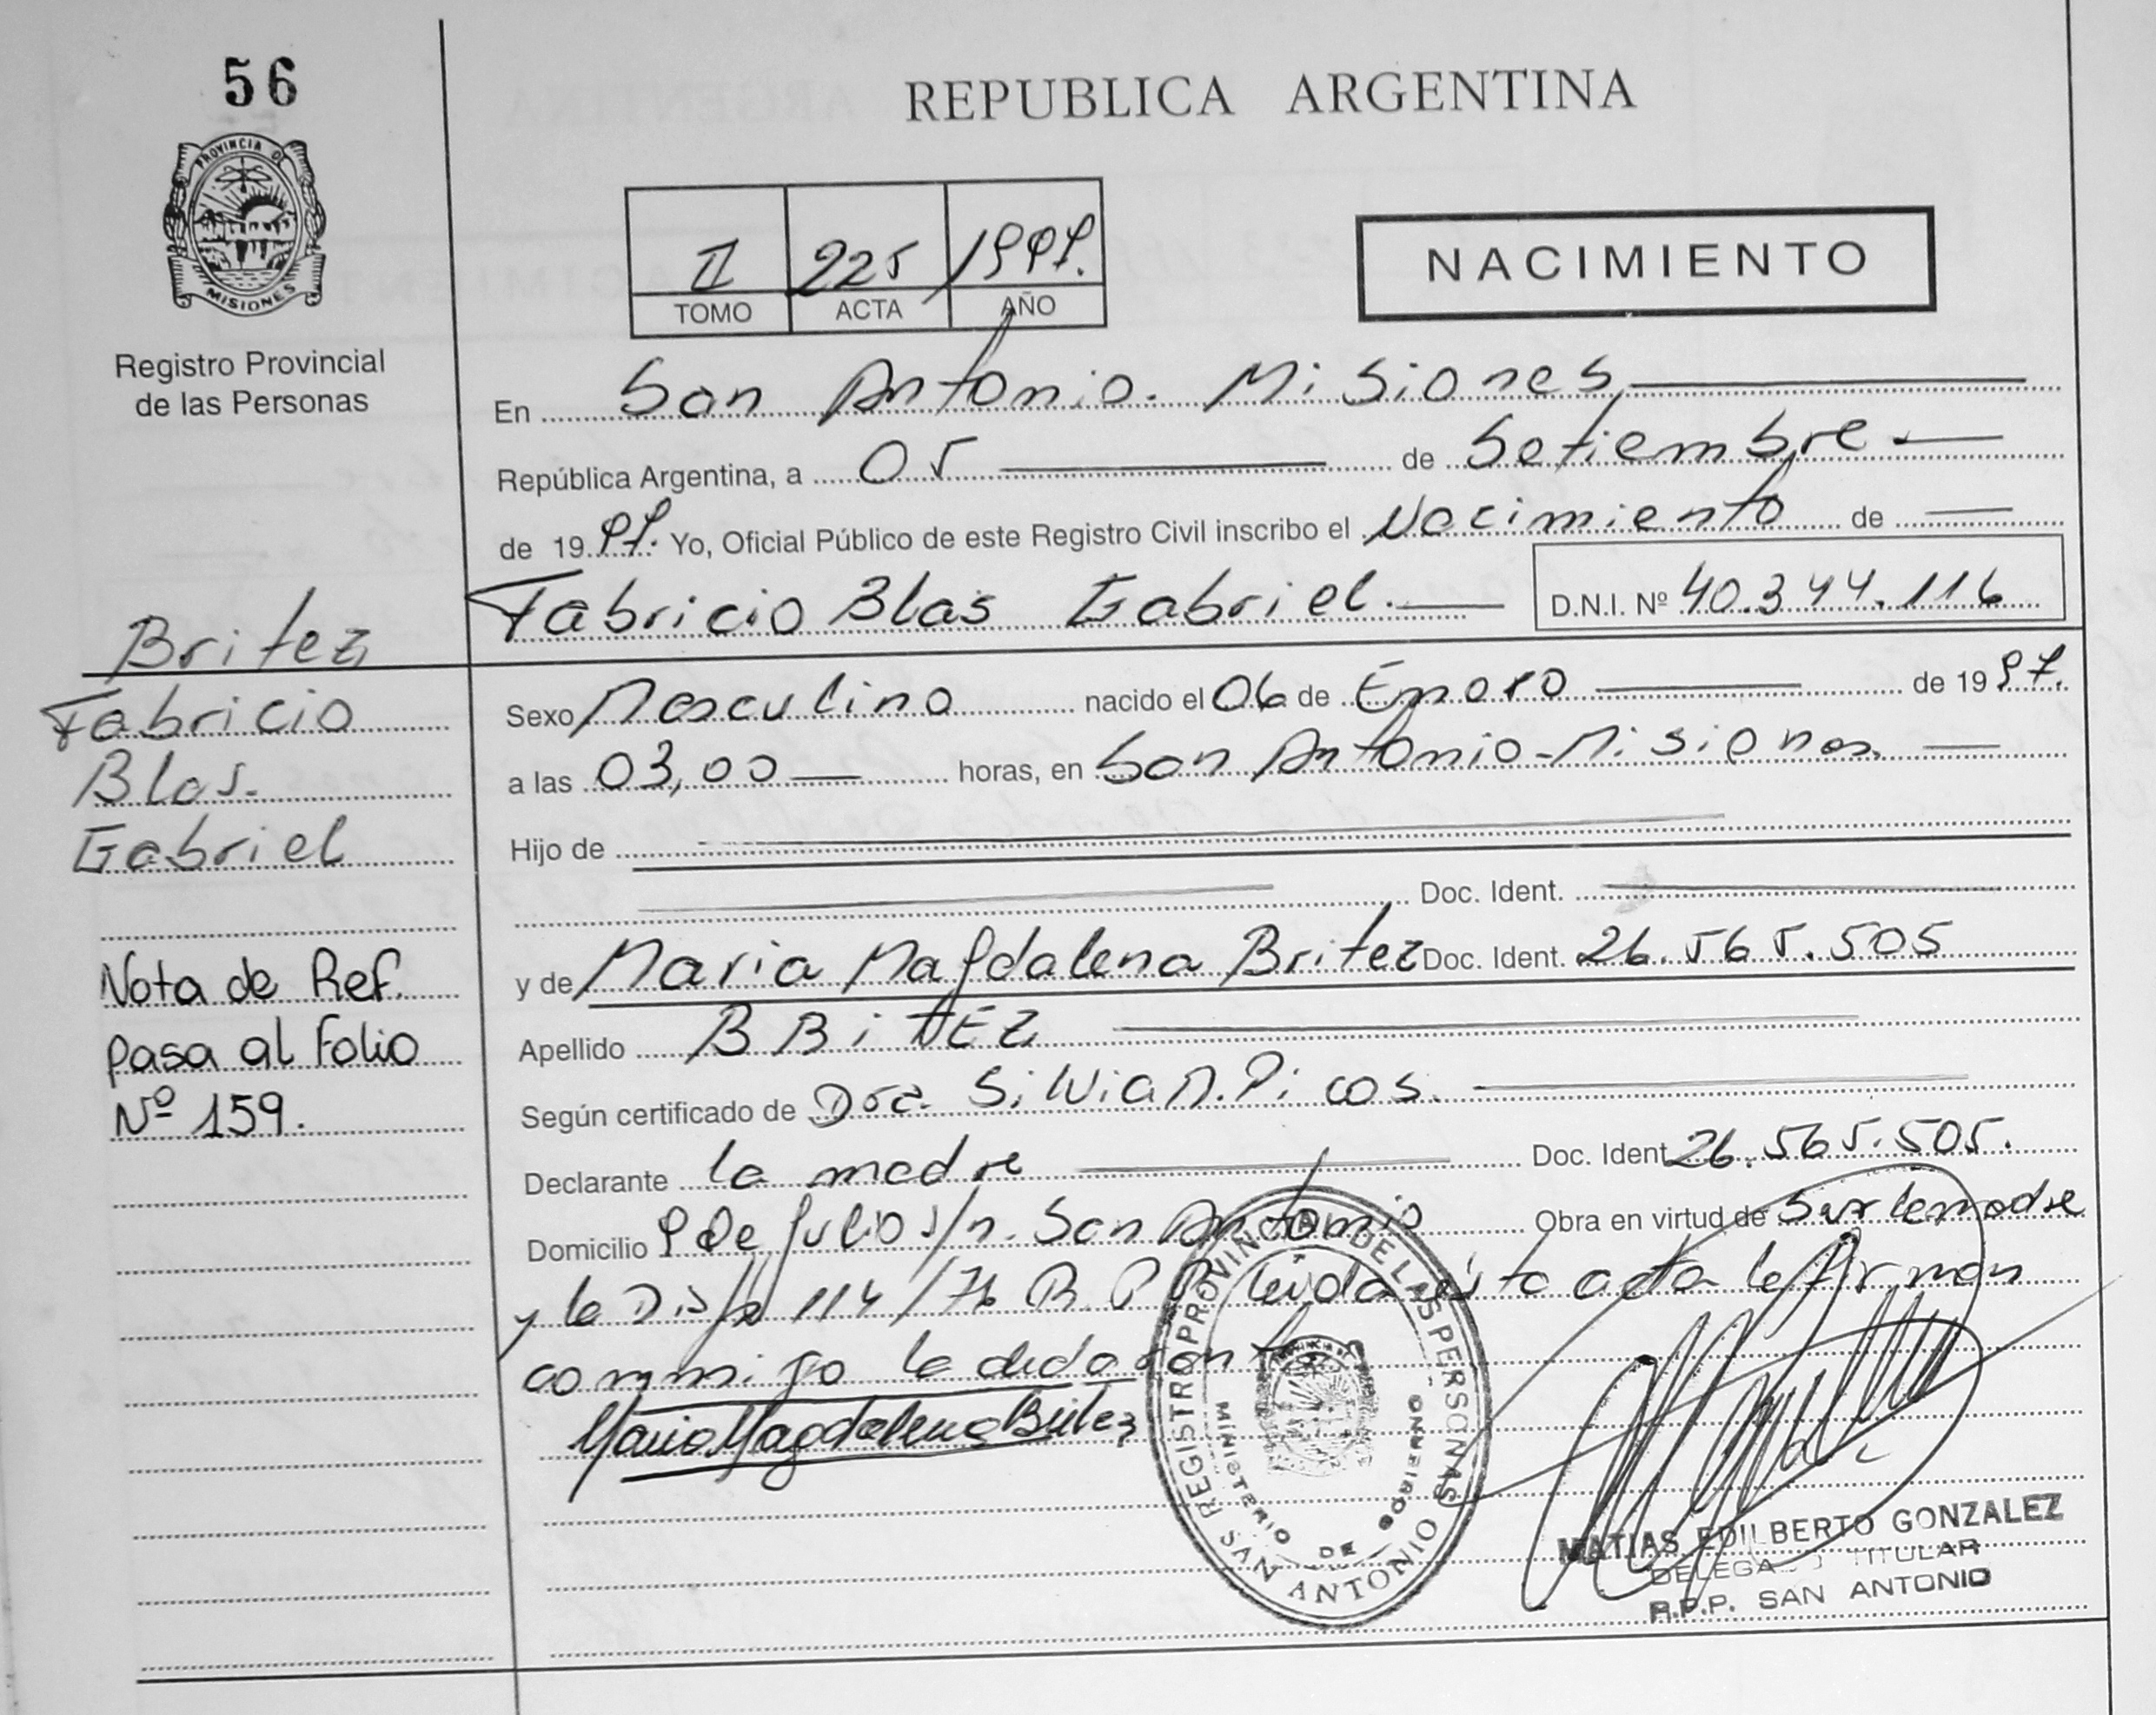 56
REPUBLICA ARGENTINA
PROVINCIA D
MISIONES
Registro Provincial
de las Personas
II 225 1997.
TOMO ACTA AÑO
NACIMIENTO
En San Antonio. Misiones
República Argentina, a 05 de Setiembre.
de 1997. Yo, Oficial Público de este Registro Civil inscribo el Nacimiento de
Fabricio Blas Gabriel. D.N.I. Nº 40.344.116
Britez
Fabricio
Blas.
Gabriel
Nota de Ref.
pasa al Folio
Nº 159.
Sexo Masculino nacido el 06 de Enero de 1997.
a las 03,00 horas, en San Antonio-Misiones.
Hijo de
Doc. Ident.
y de Maria Magdalena Britez Doc. Ident. 26.565.505
Apellido BRiTEZ
Según certificado de Dra. Silvia M. Picos.
Declarante la madre Doc. Ident 26.565.505.
Domicilio 9 De Julio s/n. San Antonio Obra en virtud de ser la madre
y la Disp 114/76 R. P. P. leida esta acta la firman
conmigo la declarante
Maria Magdalena Britez
REGISTRO PROVINCIAL DE LAS PERSONAS
SAN ANTONIO
MINISTERIO DE GOBIERNO
MATIAS EDILBERTO GONZALEZ
DELEGADO TITULAR
R.P.P. SAN ANTONIO